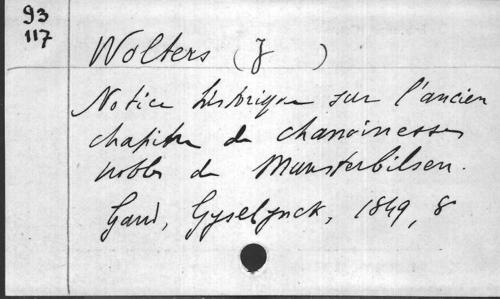 93
117
Wolters (J )
Notice historique sur l'ancien
chapitre de chanoinesses
nobles de Munsterbilsen.
Gand, Gyselynck, 1849, 8